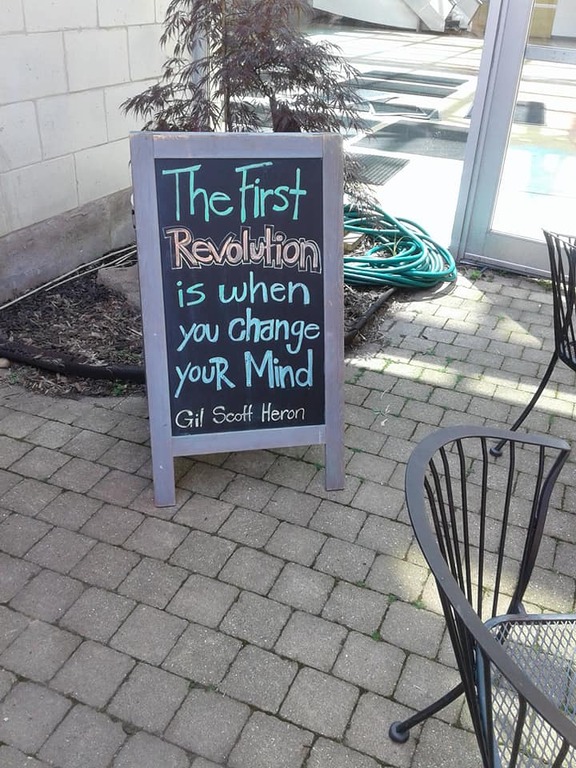 The First
Revolution
is when
you change
youR Mind
Gil Scott Heron